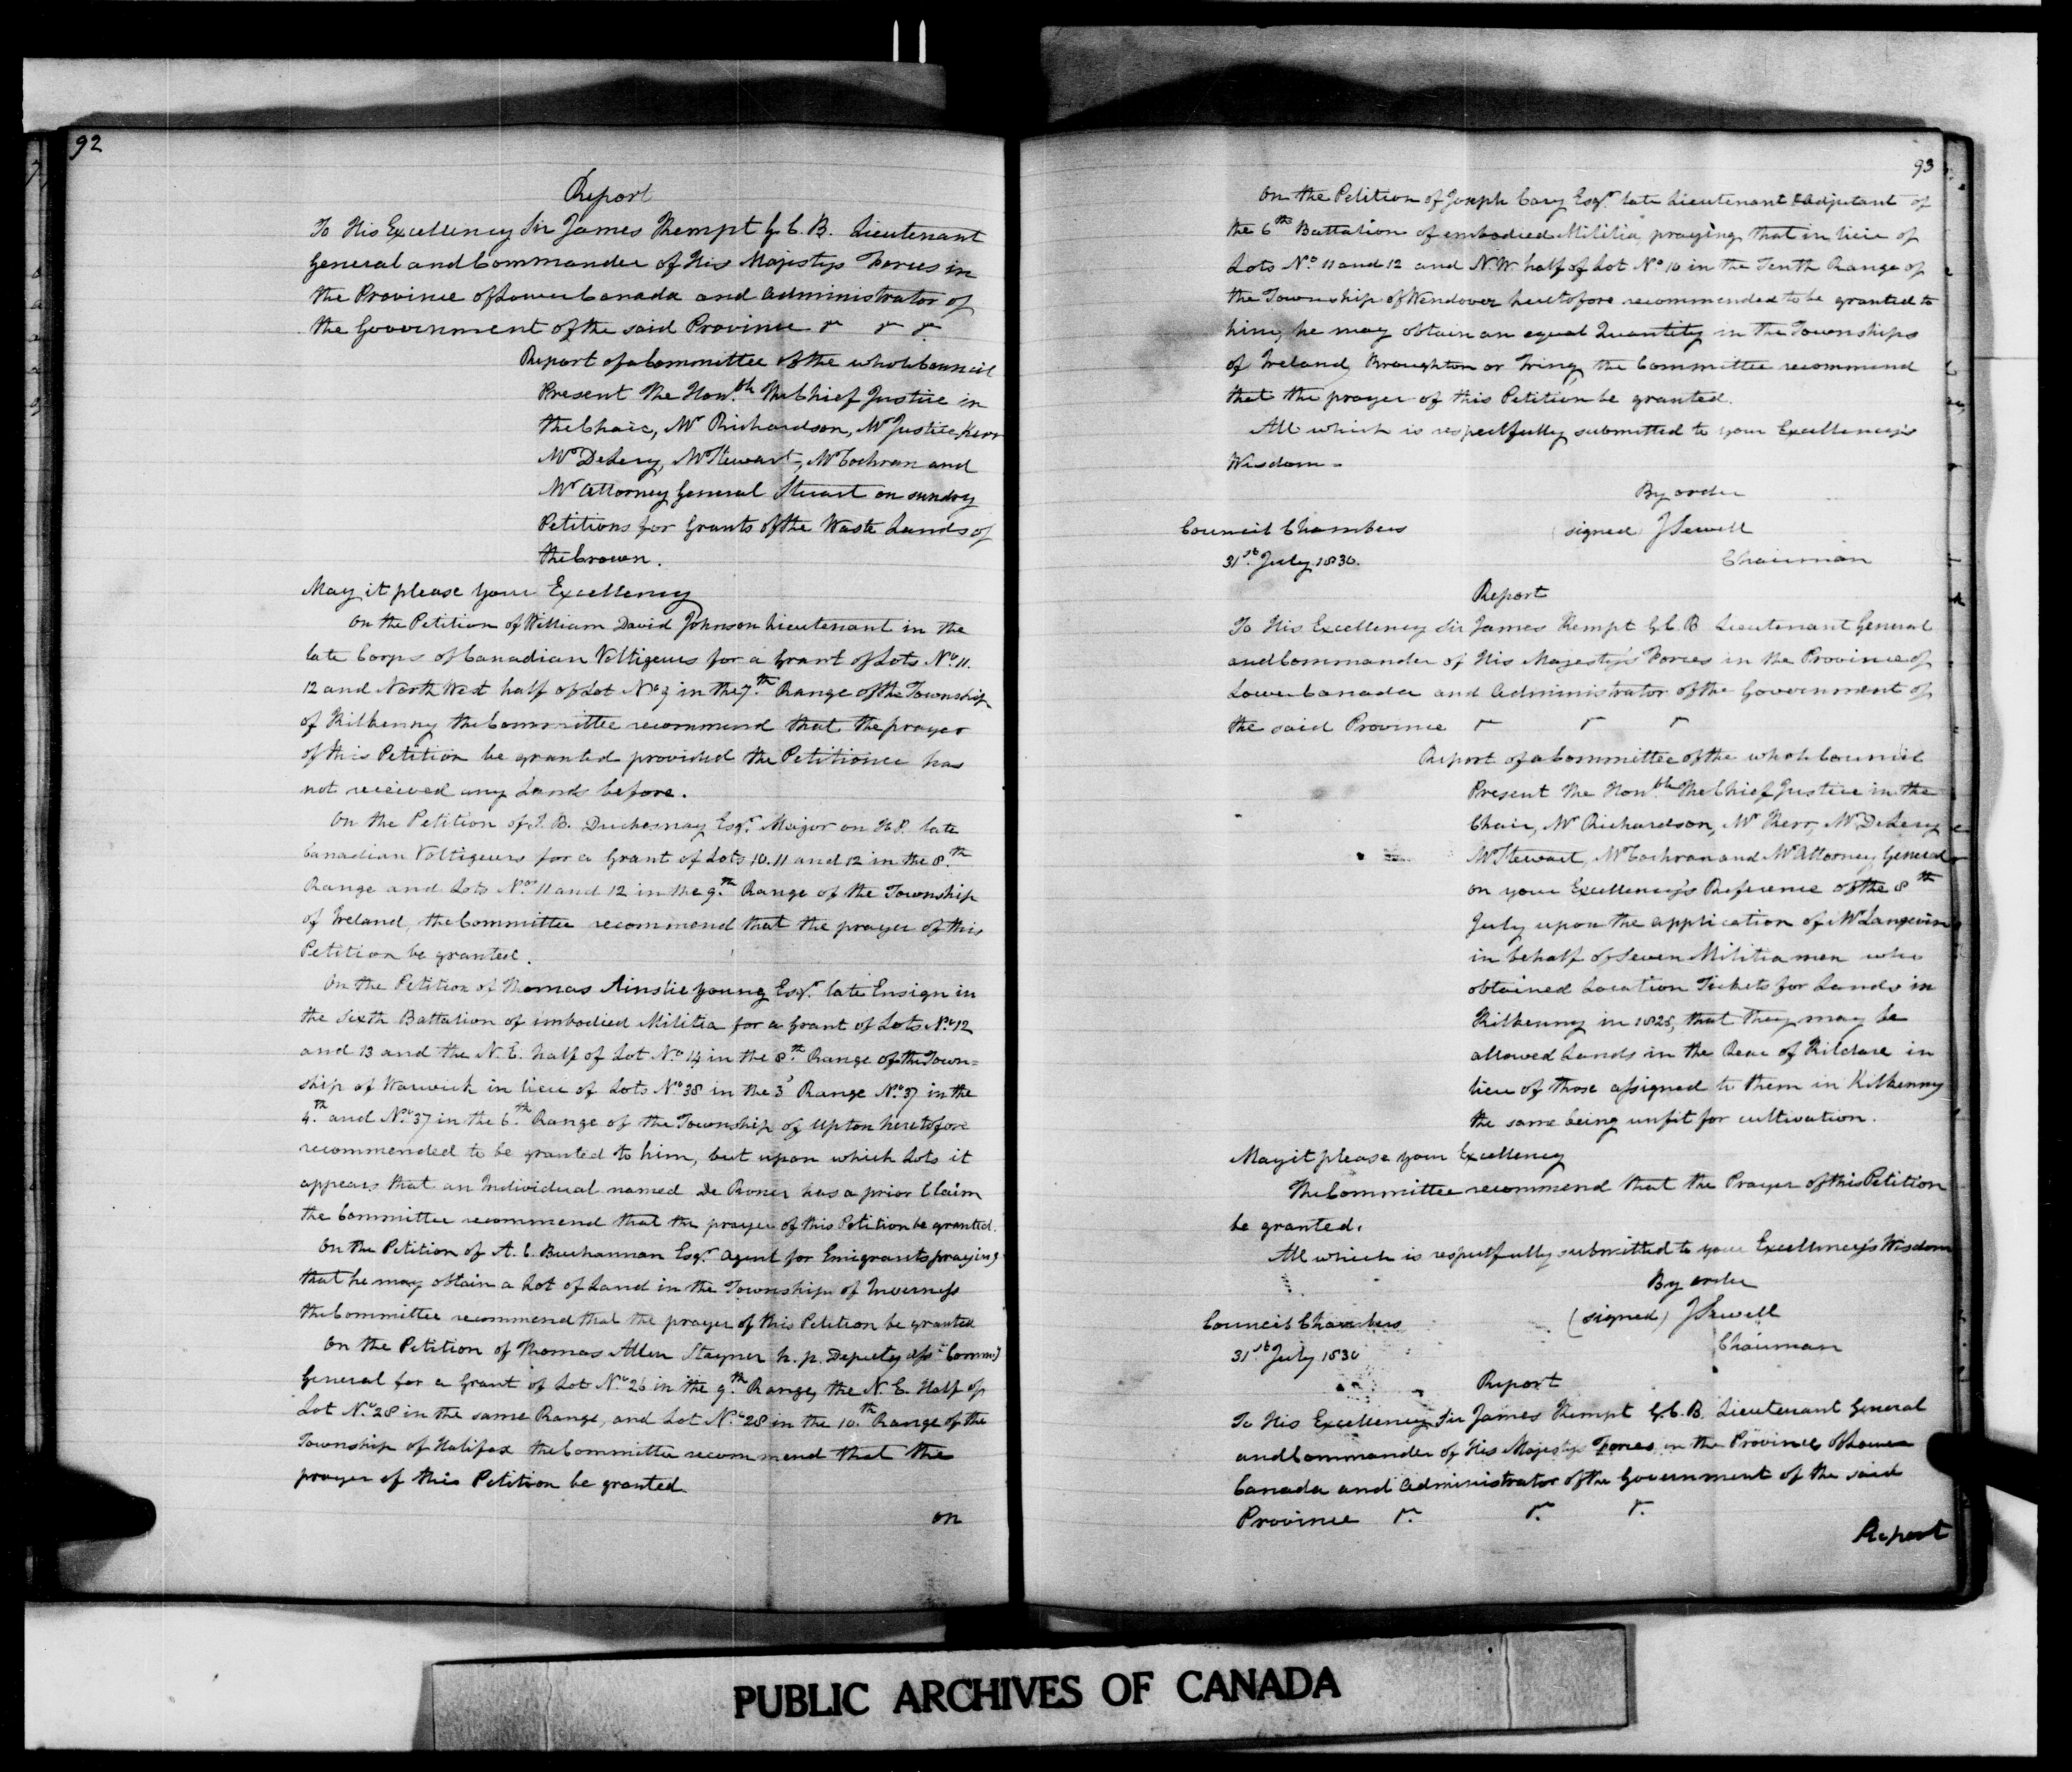 92
Report
To His Excellency Sir James Kempt G.C.B. Lieutenant
General and Commander of His Majestys Forces in
the Province of Lower Canada and Administrator of
the Government of the said Province &c &c &c
Report of a Committee of the whole Council
Present The Hon.ble The Chief Justice in
the Chair, Mr Richardson, Mr Justice Kerr
Mr DeLery, Mr Stewart, Mr Cochran and
Mr Attorney General Stuart on sundry
Petitions for Grants of the Waste Lands of
the Crown.
May it please your Excellency
On the Petition of William David Johnson Lieutenant in the
late Corps of Canadian Voltigeurs for a Grant of Lots No. 11.
12 and North West half of Lot No. 9 in the 7.th Range of the Township
of Kilkenny the Committee recommend that the prayer
of this Petition be granted provided the Petitioner has
not received any Lands before.
On the Petition of J. B. Duchesnay Esqr. Major on H.P. late
Canadian Voltigeurs for a Grant of Lots 10. 11 and 12 in the 8.th
Range and Lots Nos. 11 and 12 in the 9.th Range of the Township
of Ireland, the Committee recommend that the prayer of this
Petition be granted.
On the Petition of Thomas Ainslie Young Esqr. late Ensign in
the Sixth Battalion of imbodied Militia for a Grant of Lots No. 12
and 13 and the N. E. half of Lot No. 14 in the 8.th Range of the Town=
ship of Warwick in lieu of Lots No. 38 in the 3d Range No. 37 in the
4.th and No. 37 in the 6.th Range of the Township of Upton heretofore
recommended to be granted to him, but upon which Lots it
appears that an Individual named De has a prior Claim
the Committee recommend that the prayer of this Petition be granted.
On the Petition of A. C. Buchannan Esqr. Agent for Emigrants praying
that he may obtain a Lot of Land in the Township of Inverness
the Committee recommend that the prayer of this Petition be granted
On the Petition of Thomas Allen Stayner h. p. Deputy Asst. Commy
General for a Grant of Lot No. 26 in the 9.th Range, the N. E. Half of
Lot No. 28 in the same Range, and Lot No. 28 in the 10.th Range of the
Township of Halifax the Committee recommend that the
prayer of this Petition be granted.
on
93
On the Petition of Joseph Cary Esqr. late Lieutenant & Adjutant of
the 6th Battalion of embodied Militia, praying that in lieu of
Lots No. 11 and 12 and N.W. half of Lot No. 10 in the Tenth Range of
the Township of Wendover heretofore recommended to be granted to
him, he may obtain an equal Quantity in the Townships
of Ireland, Broughton or Tring, the Committee recommend
that the prayer of this Petition be granted.
All which is respectfully submitted to your Excellency's
Wisdom.
By order
Council Chambers (signed) J Sewell
31.st July 1830. Chairman
Report
To His Excellency Sir James Kempt G.C.B Lieutenant General
and Commander of His Majesty's Forces in the Province of
Lower Canada and Administrator of the Government of
the said Province &c &c &c
Report of a Committee of the whole Council
Present The Hon.ble The Chief Justice in the
Chair, Mr Richardson, Mr Kerr, Mr DeLery
Mr Stewart, Mr Cochran and Mr Attorney General
on your Excellency's Reference of the 8th
July upon the application of Mr Langevin
in behalf of Seven Militia men who
obtained Location Tickets for Lands in
Kilkenny in 1828, that they may be
allowed Lands in the Rear of Kildare in
lieu of those assigned to them in Kilkenny
the same being unfit for cultivation.
May it please your Excellency
The Committee recommend that the Prayer of this Petition
be granted.
All which is respectfully submitted to your Excellency's Wisdom
By order
Council Chambers (signed) J Sewell
31.st July 1830 Chairman
Report
To His Excellency Sir James Kempt G.C.B. Lieutenant General
and Commander of His Majestys Forces in the Province of Lower
Canada and Administrator of the Government of the said
Province &c. &c. &c.
Report
PUBLIC ARCHIVES OF CANADA